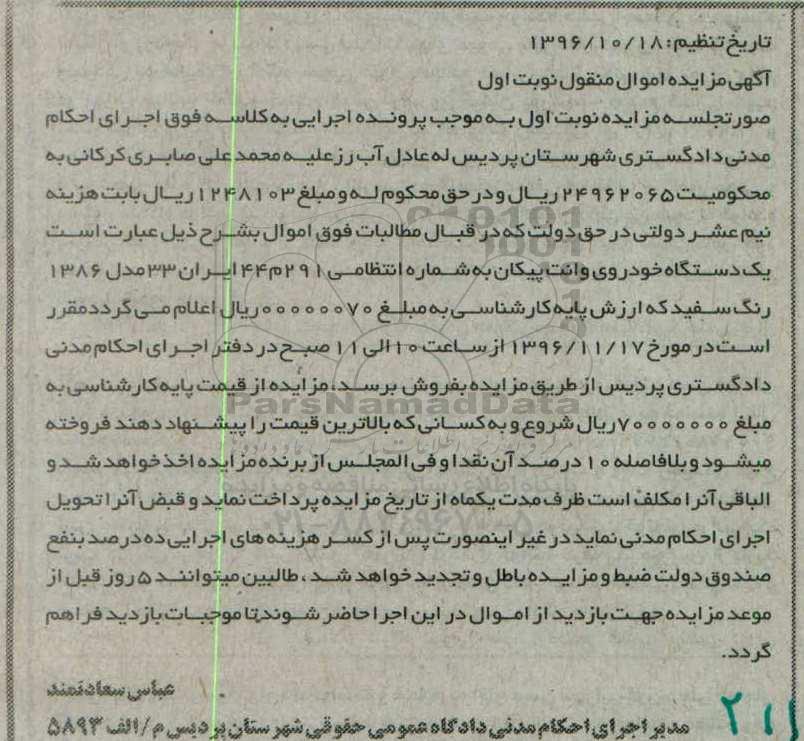 تاریخ تنظیم: ۱۳۹۶/۱۰/۱۸
آگهی مزایده اموال منقول نوبت اول
صورتجلسه مزایده نوبت اول به موجب پرونده اجرایی به کلاسه فوق اجرای احکام
مدنی دادگستری شهرستان پردیس له عادل آب رز علیه محمد علی صابری کرکانی به
محکومیت ۲۴۹۶۲۰۶۵ ریال و در حق محکوم له و مبلغ ۱۲۴۸۱۰۳ ریال بابت هزینه
نیم عشر دولتی در حق دولت که در قبال مطالبات فوق اموال بشرح ذیل عبارت است
یک دستگاه خودروی وانت پیکان به شماره انتظامی ۲۹۱م۴۴ ایران ۳۳ مدل ۱۳۸۶
رنگ سفید که ارزش پایه کارشناسی به مبلغ ۷۰۰۰۰۰۰۰ ریال اعلام می گردد مقرر
است در مورخ ۱۳۹۶/۱۱/۱۷ از ساعت ۱۰ الی ۱۱ صبح در دفتر اجرای احکام مدنی
دادگستری پردیس از طریق مزایده بفروش برسد، مزایده از قیمت پایه کارشناسی به
مبلغ ۷۰۰۰۰۰۰۰ ریال شروع و به کسانی که بالاترین قیمت را پیشنهاد دهند فروخته
میشود و بلافاصله ۱۰ درصد آن نقدا و فی المجلس از برنده مزایده اخذ خواهد شد و
الباقی آنرا مکلف است ظرف مدت یکماه از تاریخ مزایده پرداخت نماید و قبض آنرا تحویل
اجرای احکام مدنی نماید در غیر اینصورت پس از کسر هزینه های اجرایی ده درصد بنفع
صندوق دولت ضبط و مزایده باطل و تجدید خواهد شد، طالبین میتوانند ۵ روز قبل از
موعد مزایده جهت بازدید از اموال در این اجرا حاضر شوند تا موجبات بازدید فراهم
گردد.
عباس سعادتمند
مدیر اجرای احکام مدنی دادگاه عمومی حقوقی شهرستان پردیس م/الف ۵۸۹۳
ParsNamadData